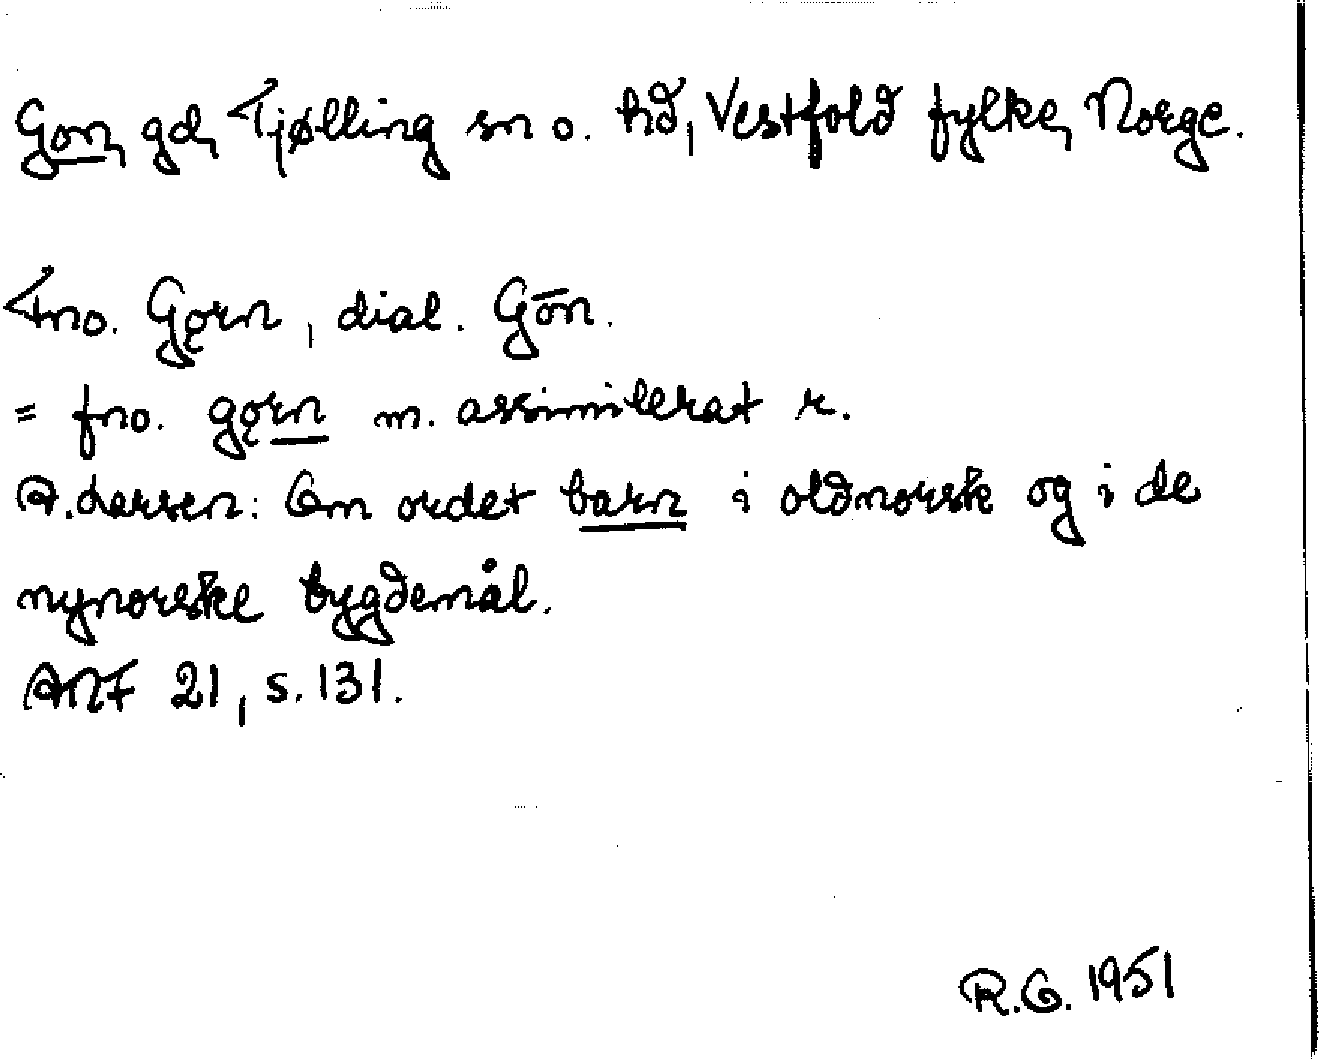 Gon, gd, Tjølling sn o. hd, Vestfold fylke, Norge.
Fno. Gǫrn, dial. Gōn.
= fno. gǫrn m. assimilerat r.
A. Larsen: Om ordet barn i oldnorsk og i de
nynorske bygdemål.
ANF 21, s. 131.
R.G. 1951